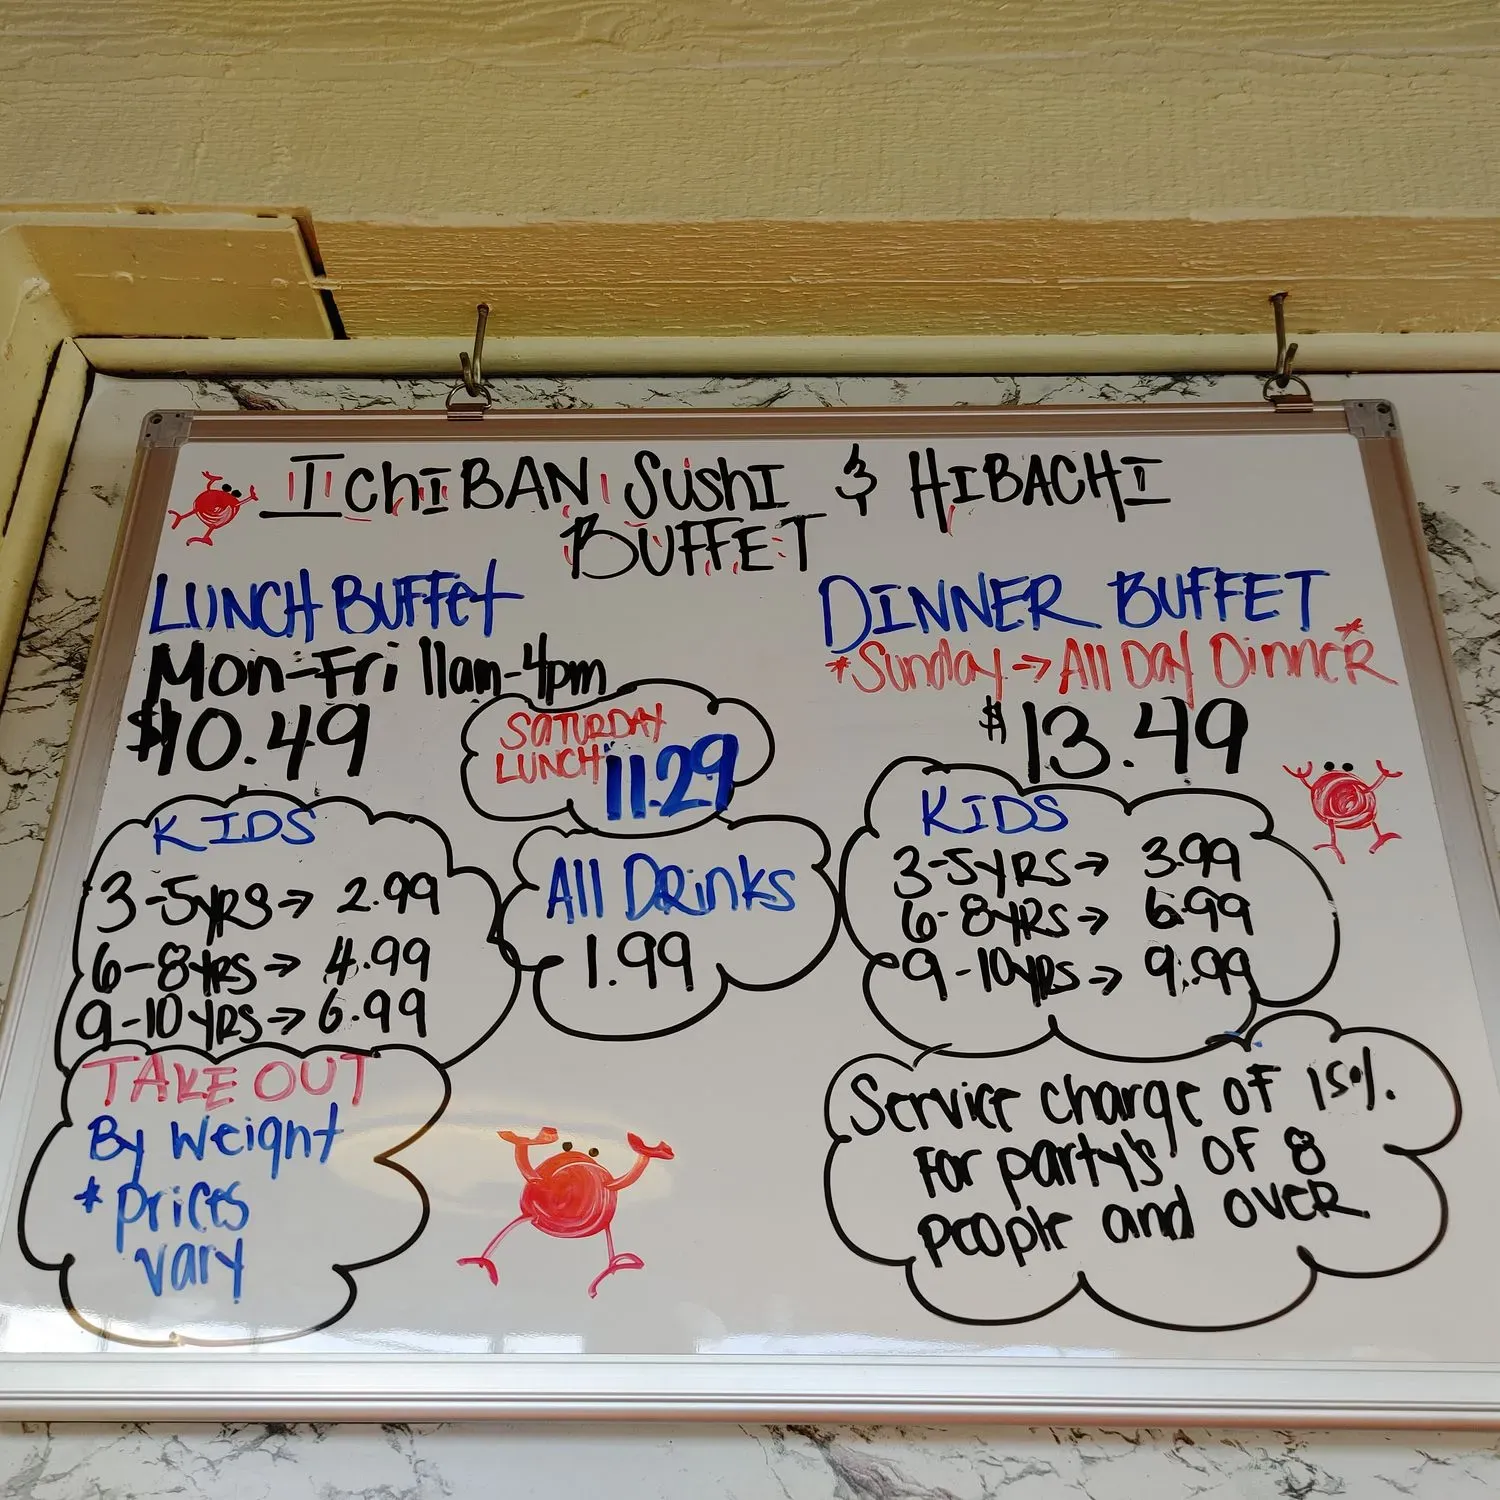 IchIBAN SushI & HIBACHI
BUFFET
LUNCH BUFFet
Mon-Fri 11am-4pm
$10.49
SATURDAY
LUNCH 11.29
KIDS
3-5yRS→ 2.99
6-8yRS→ 4.99
9-10yRS→ 6.99
All DRinks
1.99
TAKE OUT
By Weight
*prices
vary
DINNER BUFFET
*Sunday→All Day DinneR*
$13.49
KIDS
3-5yRS→ 3.99
6-8yRS→ 6.99
9-10yRS→ 9.99
Service charge of 15%
For party's OF 8
people and oveR.